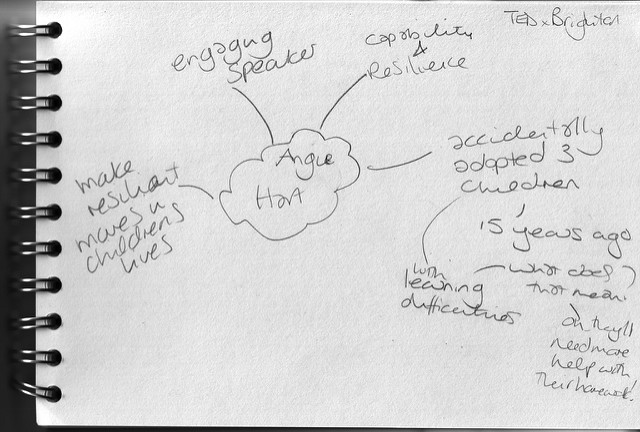 TEDxBrighton
engaging
Speaker
capability
&
Resilience
Angie
Hart
accidentally
adopted 3
children
15 years ago
with
learning
difficulties
what does
that mean?
oh they'll
need more
help with
their homework!
make
resilient
moves in
childrens
lives